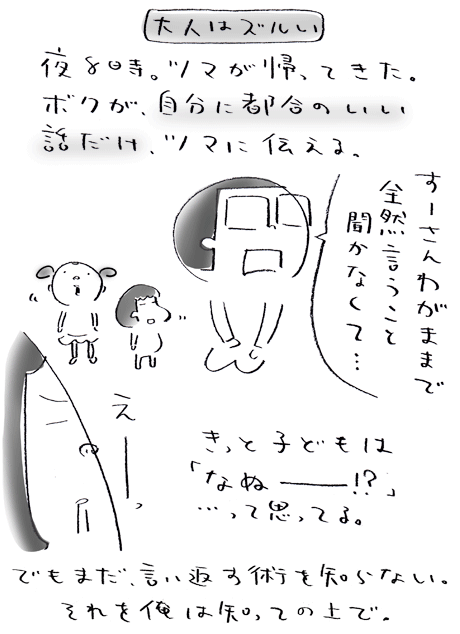 大人はズルい
夜8時。ツマが帰ってきた。
ボクが、自分に都合のいい
話だけ、ツマに伝える。
すーさんわがままで
全然言うこと
聞かなくて…
えーーっ
きっと子どもは
「なぬーーー!?」
…って思ってる。
でもまだ、言い返す術を知らない。
それを俺は知っての上で。